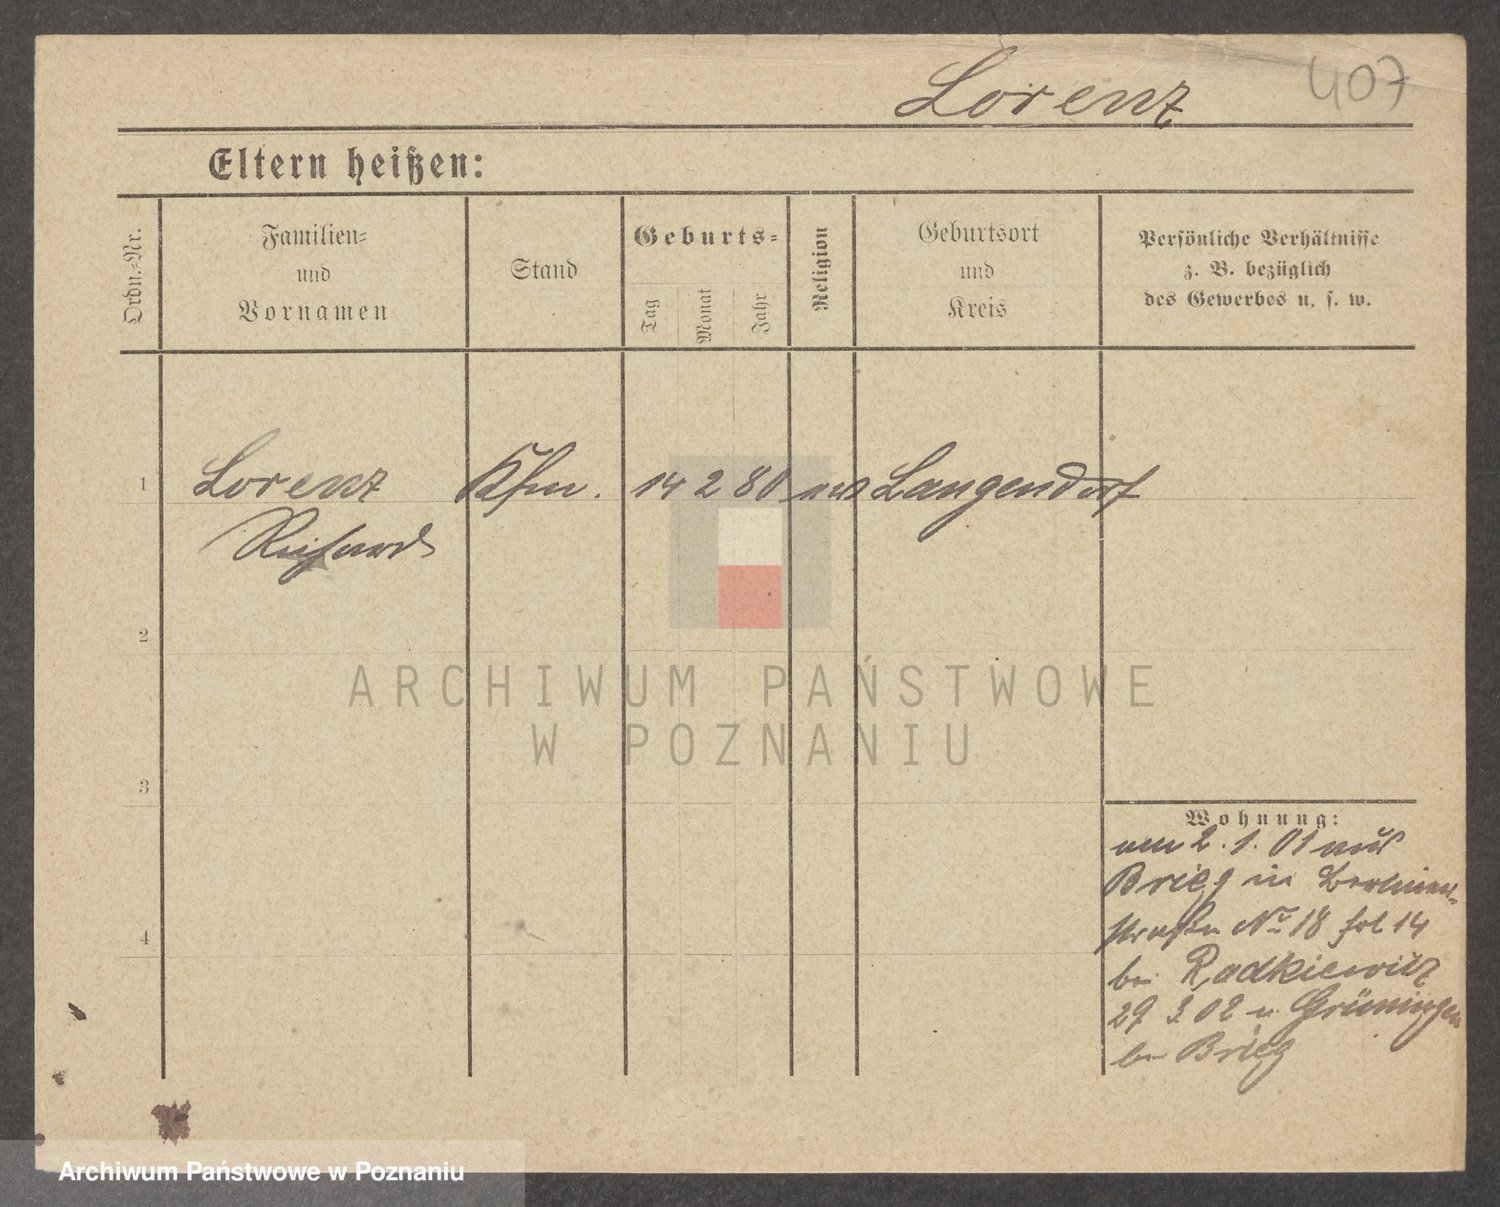 Lorenz 407
Eltern heißen:
Ordn.-Nr.
Familien-
und
Vornamen
Stand
Geburts-
Tag
Monat
Jahr
Religion
Geburtsort
und
Kreis
Persönliche Verhältnisse
z. B. bezüglich
des Gewerbes u. s. w.
1 Lorenz Kfm. 14 2 80 Langendorf
Richard
2
3
4
Wohnung:
2. 1. 01 aus
Brieg in Berliner-
straße No 18 14
bei Radkiewicz
29 3 02 n Grüningen
bei Brieg
ARCHIWUM PAŃSTWOWE
W POZNANIU
Archiwum Państwowe w Poznaniu